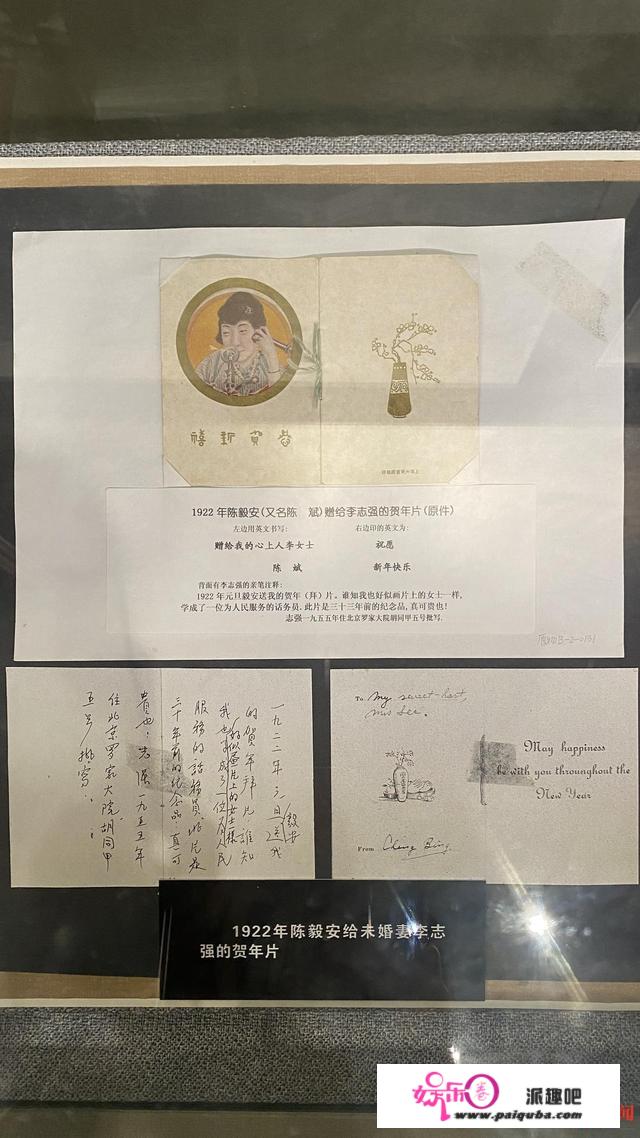 禧新賀恭
1922年陈毅安(又名陈 斌)赠给李志强的贺年片(原件)
左边用英文书写: 右边印的英文为:
赠给我的心上人李女士 祝愿
陈 斌 新年快乐
背面有李志强的亲笔注释:
1922年元旦毅安送我的贺年(拜)片。谁知我也好似画片上的女士一样,
学成了一位为人民服务的话务员.此片是三十三年前的纪念品,真可贵也!
志强一九五五年住北京罗家大院胡同甲五号批写.
一九二二年元旦毅安送我
的賀年拜片.誰知
我也好似画片上的女士一樣
成了一位为人民
服務的話務員.此片是
三十年前的纪念品.真可
貴也:志强一九五五年
住北京罗家大院胡同甲
五号批写:
To My sweet-hart
Miss Lee.
From Ching Bing.
May happiness
be with you throughout the
New Year
1922年陈毅安给未婚妻李志
强的贺年片
娱乐圈 派趣吧
www.paiquba.com